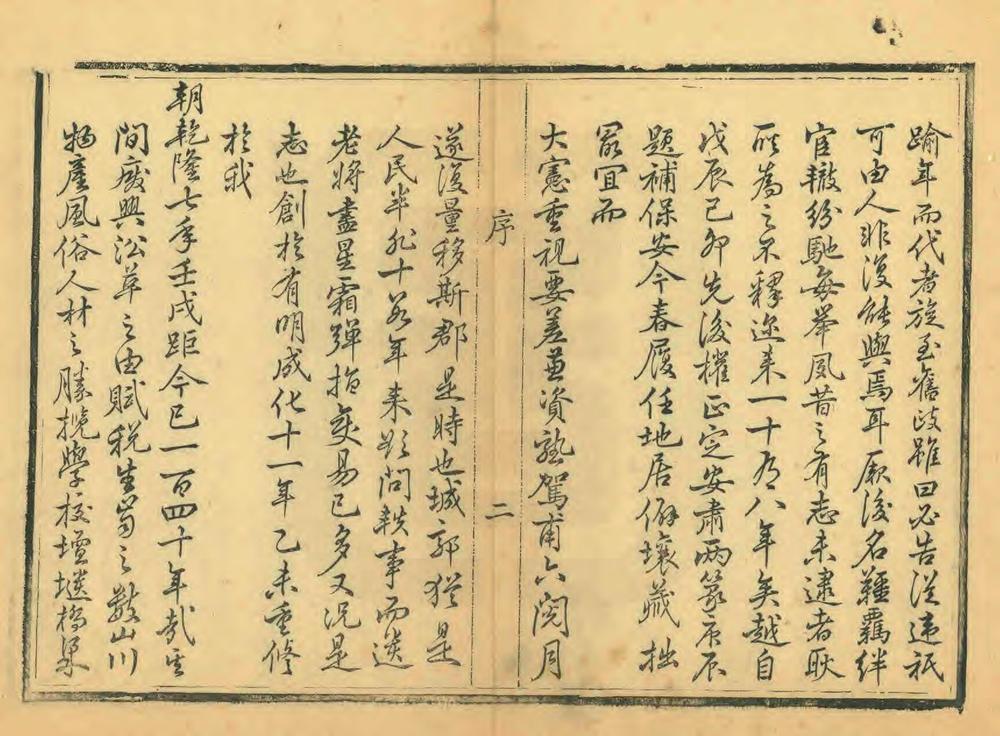 踰年而代者旋至舊政雖曰必告從違祇
可由人非復能與焉耳厥後名韁羈絆
宦轍紛馳每舉夙昔之有志未逮者耿
耿為之不釋迩来一十有八年矣越自
戊辰己卯先後權正定安肅兩篆庚辰
題補保安今春履任地居僻壤藏拙
最宜而
大憲重視要差兼資熟駕甫六閱月
遂復量移斯郡是時也城郭猶是
人民半非十数年来欲問軼事而送
老將盡星霜彈指変易已多又況是
志也創於有明成化十一年乙未重修
於我
朝乾隆七季壬戌距今已一百四十年載其
間廢興沿革之由賦稅生齒之數山川
物產風俗人材之勝挽學校壇壝橋梁
序
二